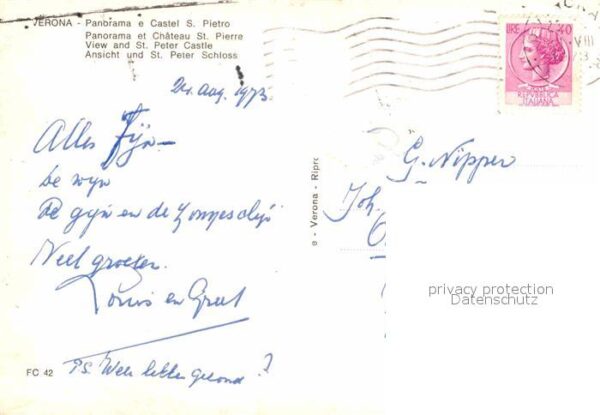 VERONA - Panorama e Castel S. Pietro
Panorama et Château St. Pierre
View and St. Peter Castle
Ansicht und St. Peter Schloss
LIRE 40
REPUBBLICA
ITALIANA
VIII
24 aug. 1973
Alles fijn
De wijn
De gijn en de zonneschijn
Veel groeten
Louis en Greet
P.S. Weer lekker gezond?
FC 42
e - Verona - Ripro
G. Nipper
Joh.
privacy protection
Datenschutz